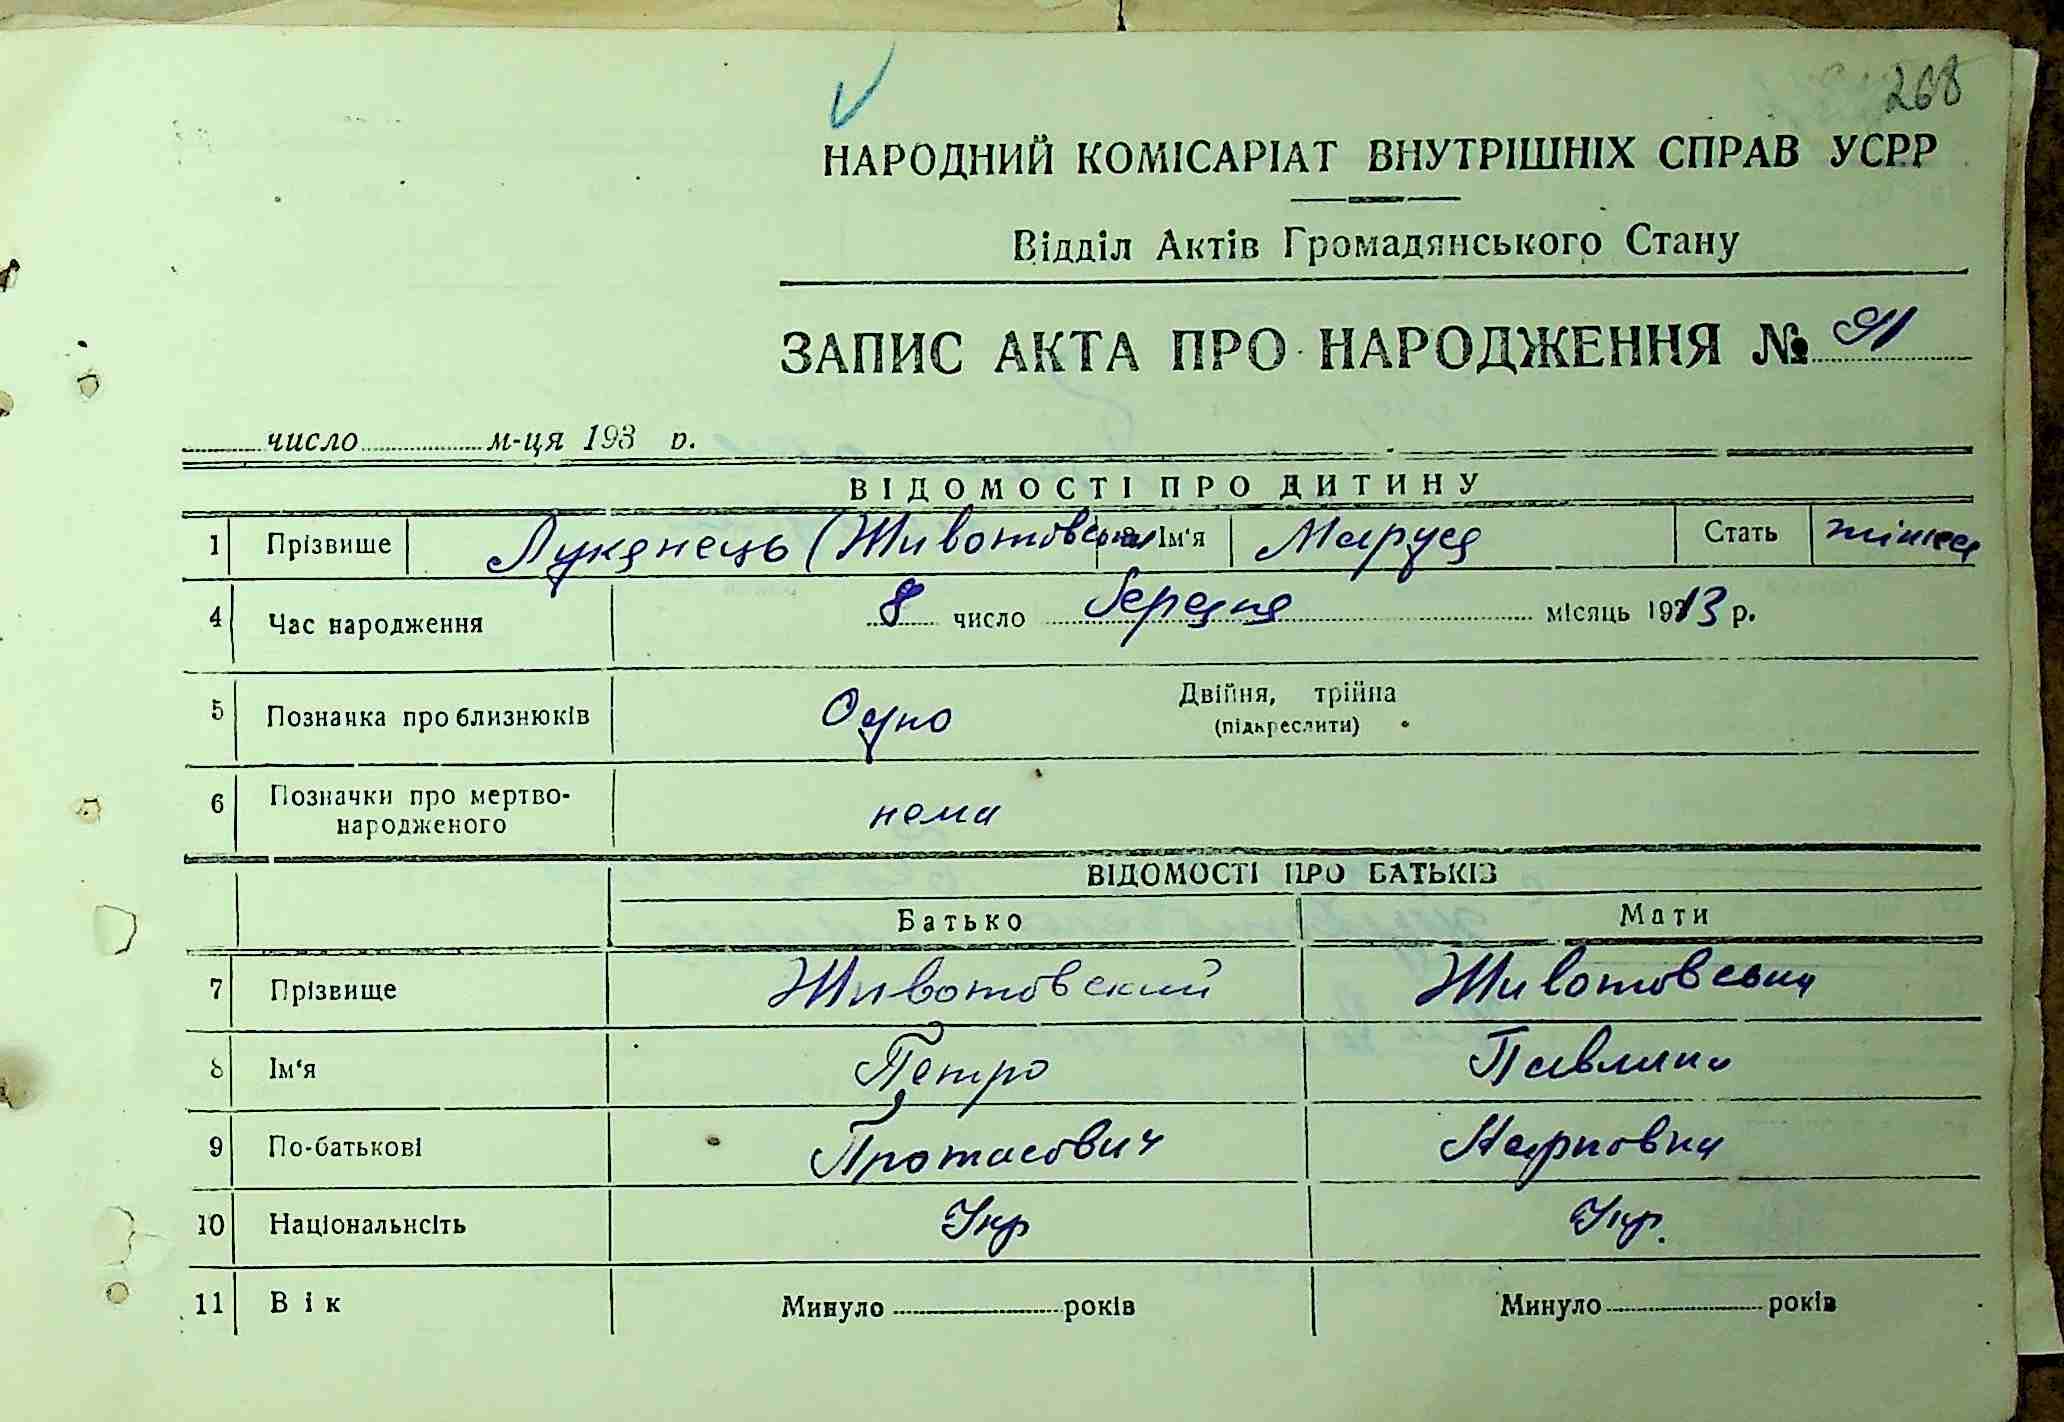 268
НАРОДНИЙ КОМІСАРІАТ ВНУТРІШНІХ СПРАВ УСРР
Відділ Актів Громадянського Стану
ЗАПИС АКТА ПРО НАРОДЖЕННЯ № 91
число м-ця 193 р.
ВІДОМОСТІ ПРО ДИТИНУ
1 Прізвище Лукянець (Животовська Ім'я Маруся Стать жіноча
4 Час народження 8 число березня місяць 1913 р.
5 Позначка про близнюків Одно Двійня, трійна
(підкреслити)
6 Позначки про мертво-
народженого нема
ВІДОМОСТІ ПРО БАТЬКІВ
Батько Мати
7 Прізвище Животовский Животовська
8 Ім'я Петро Павлина
9 По-батькові Протасович Карповна
10 Національність Укр Укр.
11 Вік Минуло років Минуло років